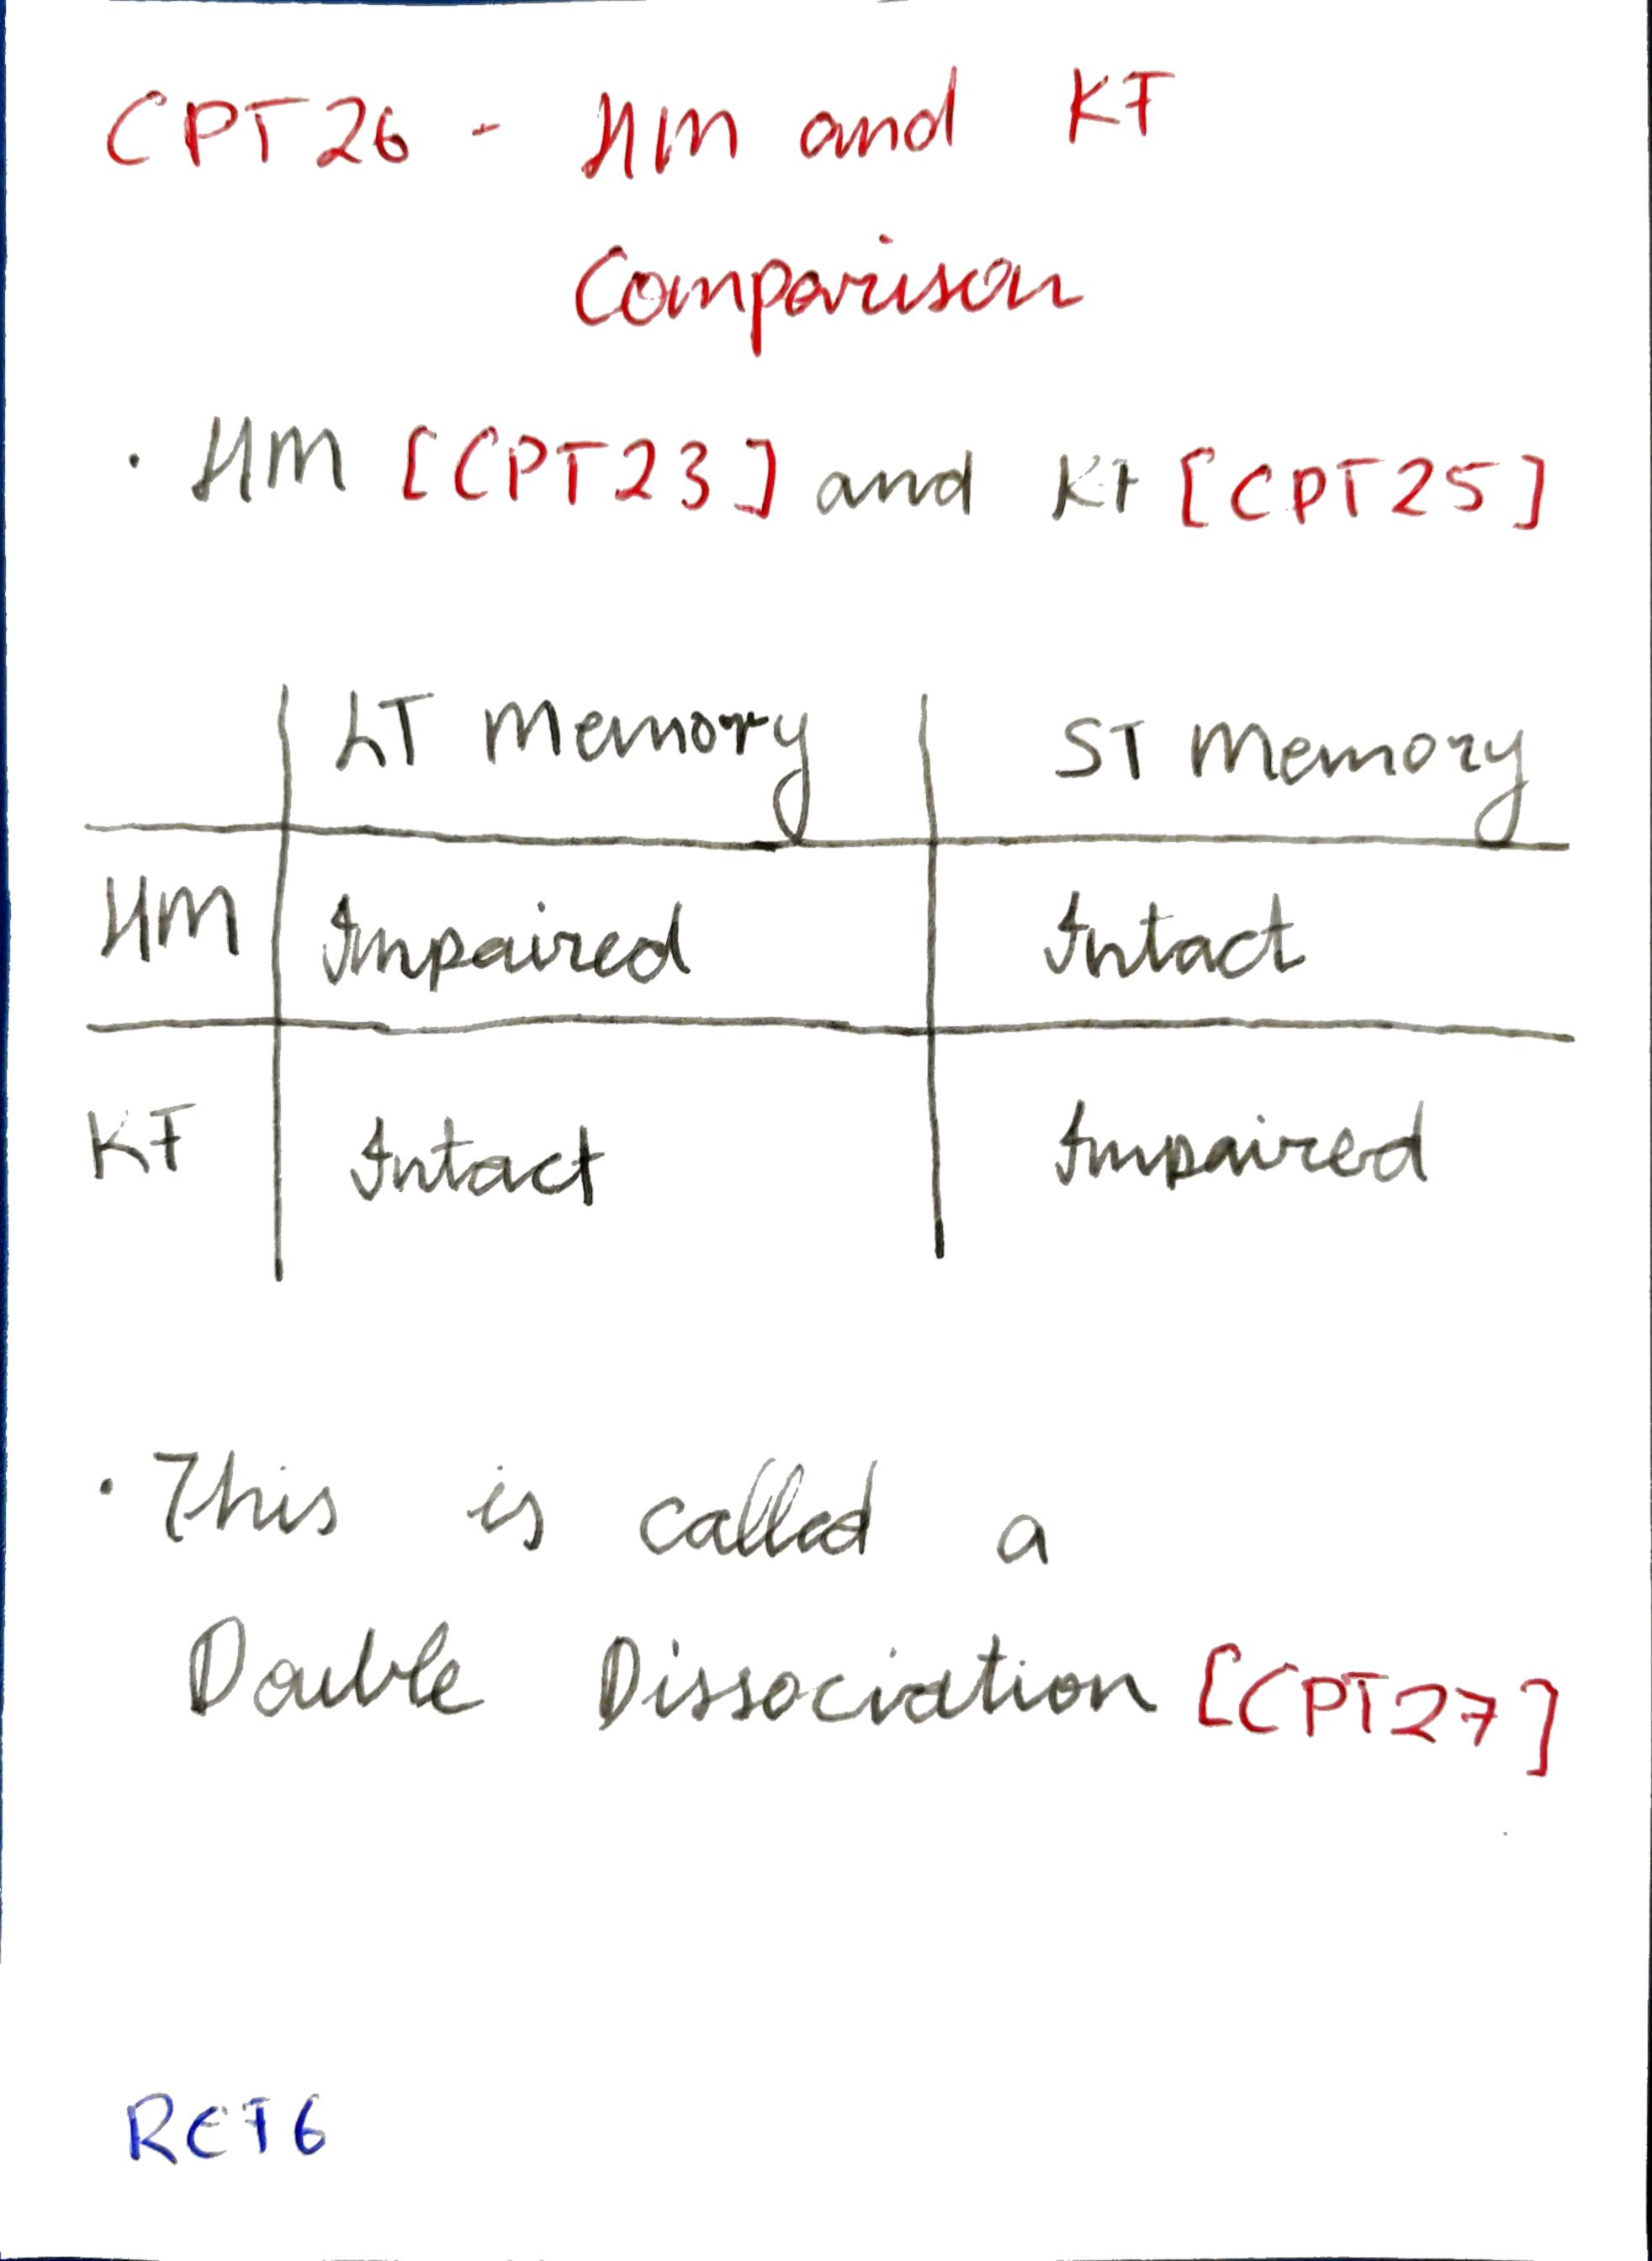 CPT26 - HM and KF
Comparison
· HM [CPT23] and KF [CPT25]
LT Memory ST Memory
HM Impaired Intact
KF Intact Impaired
· This is called a
Double Dissociation [CPT27]
REF6